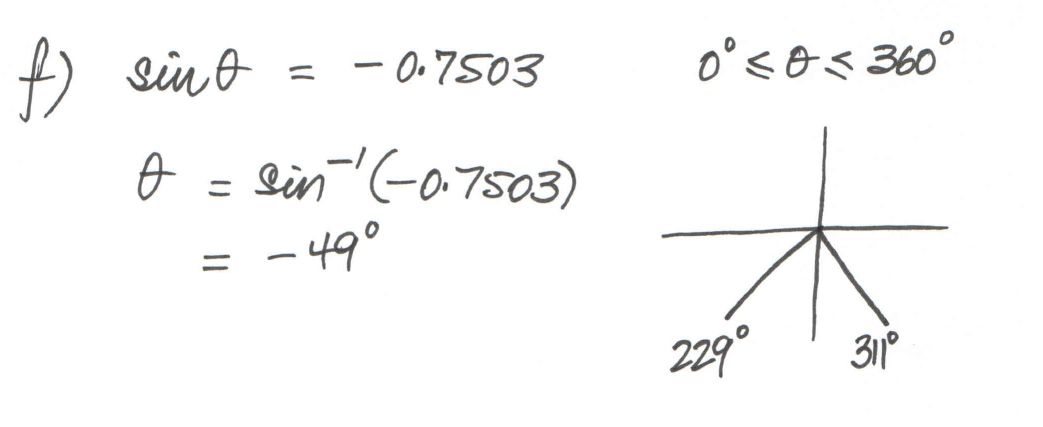 f) sin θ = -0.7503 0° ≤ θ ≤ 360°
θ = sin⁻¹(-0.7503)
= -49°
229° 311°